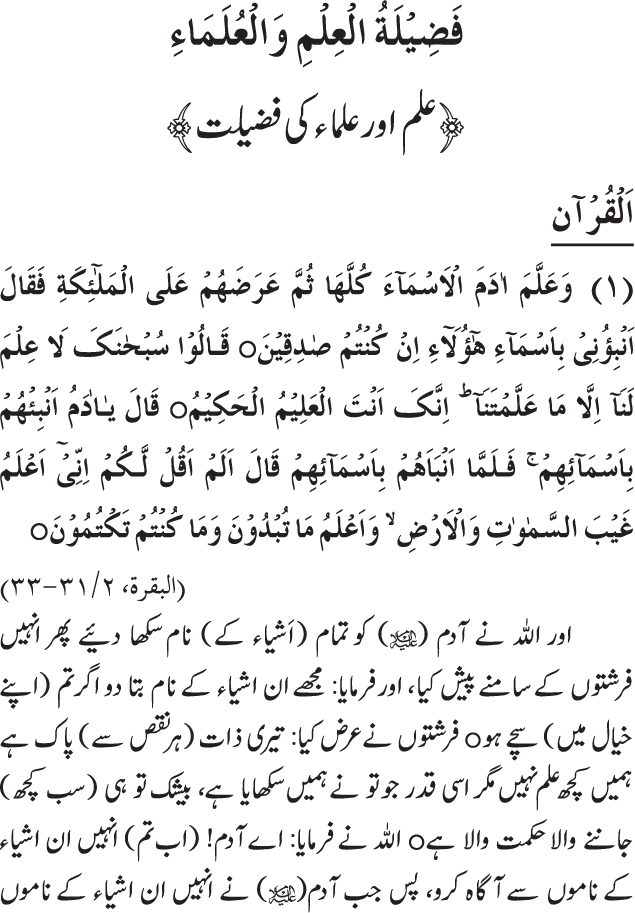 فَضِیْلَةُ الْعِلْمِ وَالْعُلَمَاءِ
﴿علم اور علماء کی فضیلت﴾
اَلْقُرْآن
(۱) وَعَلَّمَ اٰدَمَ الْاَسْمَآءَ کُلَّهَا ثُمَّ عَرَضَهُمْ عَلَی الْمَلٰٓئِکَةِ فَقَالَ
اَنْبِؤُنِیْ بِاَسْمَآءِ هٰٓؤُلَآءِ اِنْ کُنْتُمْ صٰدِقِیْنَo قَالُوْا سُبْحٰنَکَ لَا عِلْمَ
لَنَآ اِلَّا مَا عَلَّمْتَنَا ؕ اِنَّکَ اَنْتَ الْعَلِیْمُ الْحَکِیْمُo قَالَ یٰـاٰدَمُ اَنْبِئْهُمْ
بِاَسْمَآئِهِمْ ۚ فَلَمَّا اَنْبَاَهُمْ بِاَسْمَآئِهِمْ قَالَ اَلَمْ اَقُلْ لَّکُمْ اِنِّیْٓ اَعْلَمُ
غَیْبَ السَّمٰوٰتِ وَالْاَرْضِ ۙ وَاَعْلَمُ مَا تُبْدُوْنَ وَمَا کُنْتُمْ تَکْتُمُوْنَo
(البقرة، ۲/۳۱-۳۳)
اور اللہ نے آدم (علیہ السلام) کو تمام (اَشیاء کے) نام سکھا دیئے پھر انہیں
فرشتوں کے سامنے پیش کیا، اور فرمایا: مجھے ان اشیاء کے نام بتا دو اگر تم (اپنے
خیال میں) سچے ہوo فرشتوں نے عرض کیا: تیری ذات (ہر نقص سے) پاک ہے
ہمیں کچھ علم نہیں مگر اسی قدر جو تو نے ہمیں سکھایا ہے، بیشک تو ہی (سب کچھ)
جاننے والا حکمت والا ہےo اللہ نے فرمایا: اے آدم! (اب تم) انہیں ان اشیاء
کے ناموں سے آگاہ کرو، پس جب آدم (علیہ السلام) نے انہیں ان اشیاء کے ناموں